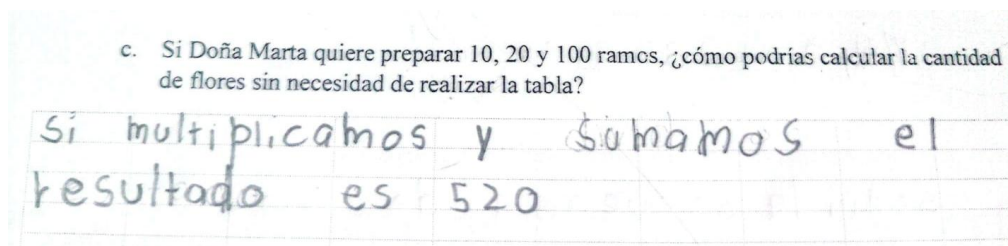 c. Si Doña Marta quiere preparar 10, 20 y 100 ramos, ¿cómo podrías calcular la cantidad
de flores sin necesidad de realizar la tabla?
Si multiplicamos y sumamos el
resultado es 520